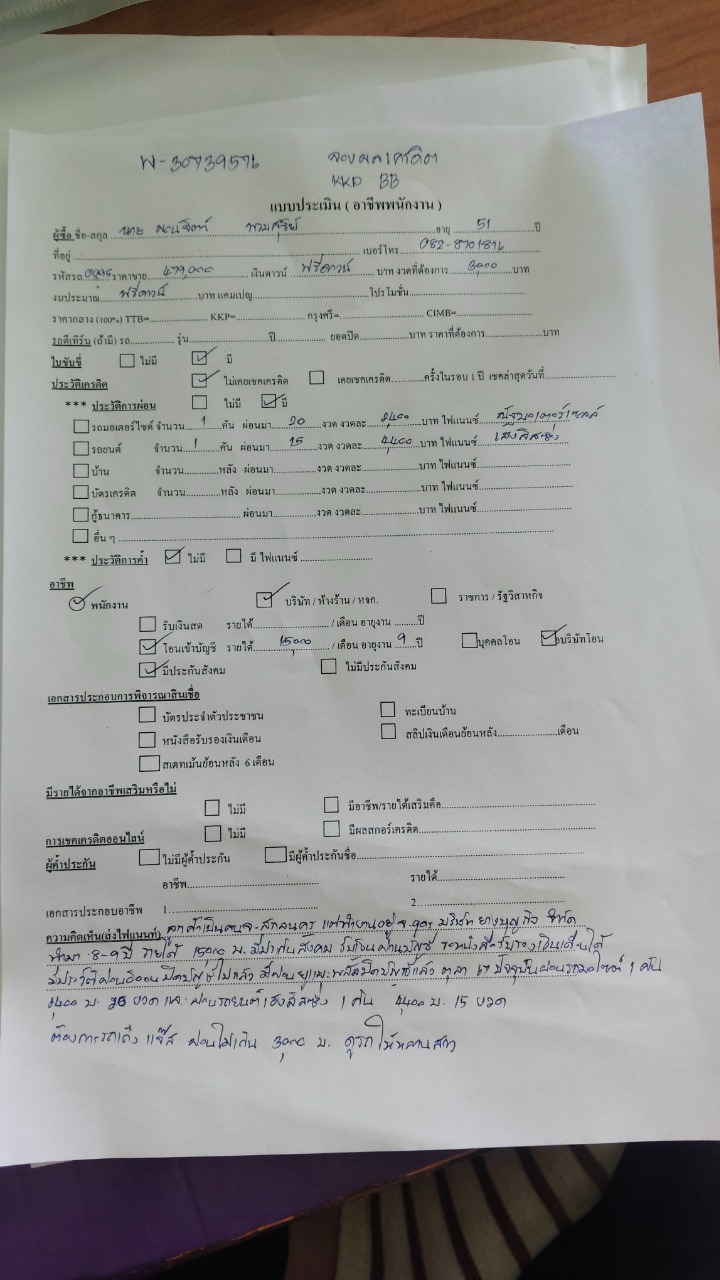 จองผลเครดิต
KKP BB
แบบประเมิน ( อาชีพพนักงาน )
ผู้ซื้อ ชื่อ-สกุล นาย อายุ 51 ปี
ที่อยู่ เบอร์โทร 082-8701816
รหัสรถ 0995 ราคาขาย 479,000 เงินดาวน์ ฟรีดาวน์ บาท งวดที่ต้องการ 3,000 บาท
งบประมาณ ฟรีดาวน์ บาท แคมเปญ โปรโมชั่น
ราคากลาง (100%) TTB= KKP= กรุงศรี= CIMB=
รถตีเทิร์น (ถ้ามี) รถ รุ่น ปี ยอดปิด บาท ราคาที่ต้องการ บาท
ใบขับขี่ ไม่มี มี
ประวัติเครดิต ไม่เคยเชคเครดิต เคยเชคเครดิต ครั้งในรอบ 1 ปี เชคล่าสุดวันที่
*** ประวัติการผ่อน ไม่มี มี
รถมอเตอร์ไซด์ จำนวน 1 คัน ผ่อนมา 20 งวด งวดละ 2,400 บาท ไฟแนนซ์
รถยนต์ จำนวน 1 คัน ผ่อนมา 15 งวด งวดละ 4,400 บาท ไฟแนนซ์ เฮงลิสซิ่ง
บ้าน จำนวน หลัง ผ่อนมา งวด งวดละ บาท ไฟแนนซ์
บัตรเครดิต จำนวน หลัง ผ่อนมา งวด งวดละ บาท ไฟแนนซ์
กู้ธนาคาร ผ่อนมา งวด งวดละ บาท ไฟแนนซ์
อื่น ๆ
*** ประวัติการค้ำ ไม่มี มี ไฟแนนซ์
อาชีพ
พนักงาน บริษัท / ห้างร้าน / หจก. ราชการ / รัฐวิสาหกิจ
รับเงินสด รายได้ / เดือน อายุงาน ปี
โอนเข้าบัญชี รายได้ 15,000 / เดือน อายุงาน 9 ปี บุคคลโอน บริษัทโอน
มีประกันสังคม ไม่มีประกันสังคม
เอกสารประกอบการพิจารณาสินเชื่อ
บัตรประจำตัวประชาชน ทะเบียนบ้าน
หนังสือรับรองเงินเดือน สลิปเงินเดือนย้อนหลัง เดือน
สเตทเม้นย้อนหลัง 6 เดือน
มีรายได้จากอาชีพเสริมหรือไม่
ไม่มี มีอาชีพ/รายได้เสริมคือ
การเชคเครดิตออนไลน์ ไม่มี มีผลสกอร์เครดิต
ผู้ค้ำประกัน ไม่มีผู้ค้ำประกัน มีผู้ค้ำประกันชื่อ
อาชีพ รายได้
เอกสารประกอบอาชีพ 1 2
ความคิดเห็น(ส่งไฟแนนท์) ลูกค้าเป็นคนจ.สกลนคร แต่ทำงานอยู่ จ. บริษัท จำกัด
ทำมา 8-9 ปี รายได้ 15,000 บ. มีประกันสังคม รับโอนผ่านบัญชี ขอหนังสือรับรองเงินเดือนได้
มีประวัติผ่อน ปิดบัญชีไปแล้ว ปิดบัญชีแล้ว ตุลา 67 ปัจจุบันผ่อนรถมอไซค์ 1 คัน
บ. งวด และ ผ่อนรถยนต์เฮงลิสซิ่ง 1 คัน 4,400 บ. 15 งวด
ต้องการรถเก๋ง แจ๊ส ผ่อนไม่เกิน 3,000 บ. ดูรถให้หลานสาว